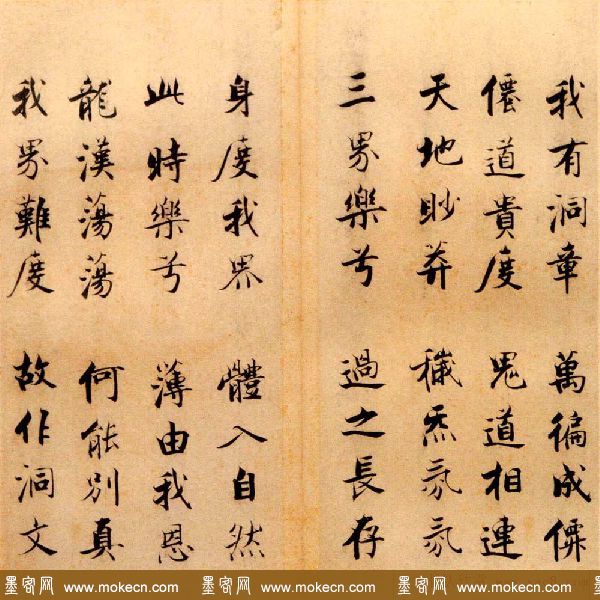 我有洞章 萬徧成僊
僊道貴度 鬼道相連
天地眇莽 穢炁氛氛
三界樂兮 過之長存
身度我界 體入自然
此時樂兮 薄由我恩
龍漢蕩蕩 何能別真
我界難度 故作洞文
墨客网 www.mokecn.com 墨客网 www.mokecn.com 墨客网 www.mokecn.com